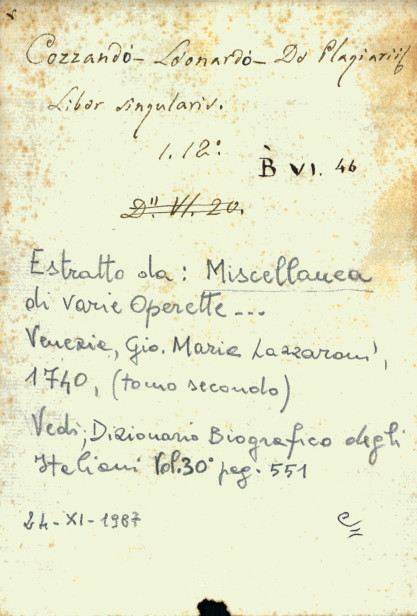 Cozzando - Leonardo - De Plagiariis
Liber singularis.
1. 12º
B VI. 46
D". VI. 20.
Estratto da: Miscellanea
di varie Operette ---
Venezia, Gio. Maria Lazzaroni,
1740, (tomo secondo)
Vedi, Dizionario Biografico degli
Italiani Vol. 30° pag. 551
24-XI-1987